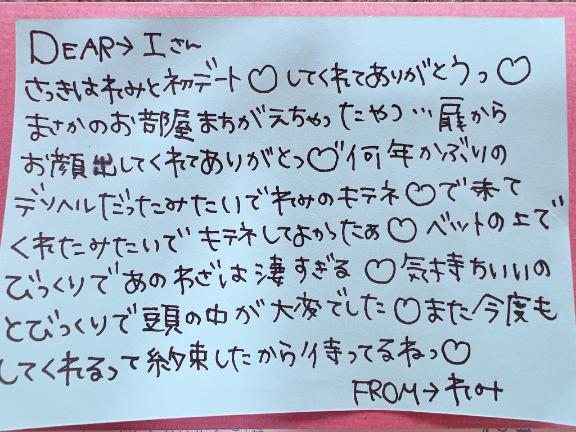 DEAR→Iさん
さっきはれみと初デート♡してくれてありがとうっ♡
まさかのお部屋まちがえちゃったやつ…扉から
お顔出してくれてありがとっ♡何年かぶりの
デリヘルだったみたいでれみのモテネ♡で来て
くれたみたいでモテネしてよかったぁ♡ベットの上で
びっくりであのわざは凄すぎる♡気持ちいいの
とびっくりで頭の中が大変でした♡また今度も
してくれるって約束したから待ってるねっ♡
FROM→れみ